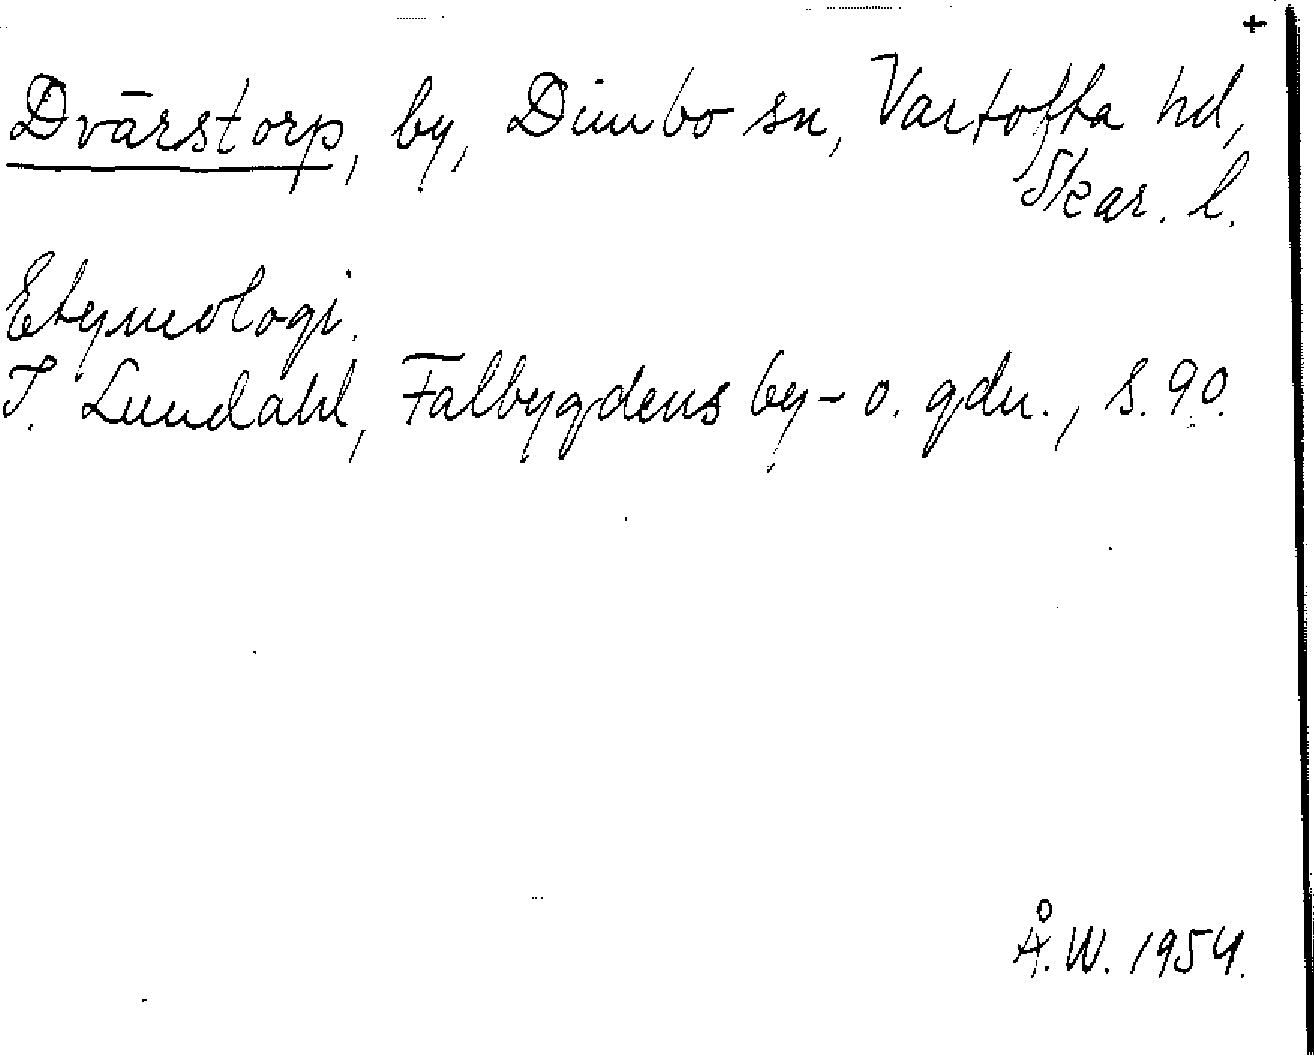 +
Dvärstorp, by, Dimbo sn, Vartofta hd,
Skar. l.
Etymologi.
I. Lundahl, Falbygdens by- o. gdn., s. 90.
Å.W. 1954.